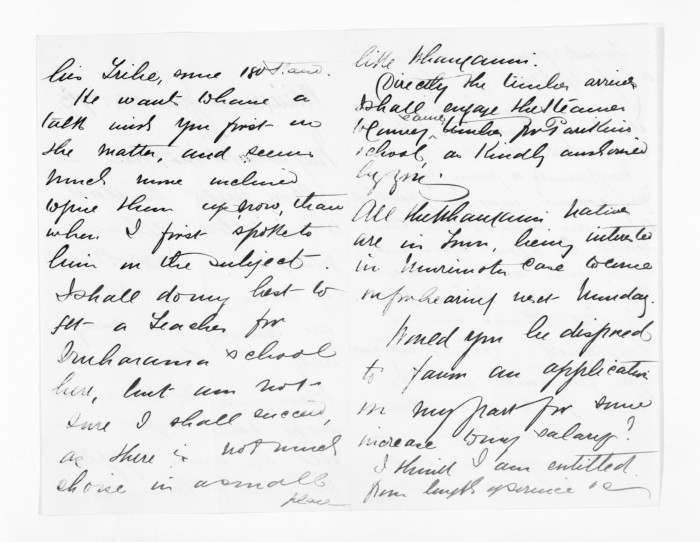 his Tribe, some 180
He wants to have a
talk with you first on
the matter, and seems
much more inclined
to give them up now, than
when I first spoke to
him on the subject.
I shall do my best to
get a Teacher for
school
here, but am not
sure I shall succeed,
as there is not much
choice in a small
place
like
Directly the timber arrives
I shall engage the Steamer
to convey timber for
school, as kindly authorised
by you.
All the natives
are in Town, being interested
in Murimotu Case to come
on for hearing next Monday.
Would you be disposed
to favor an application
on my part for some
increase to my salary?
I think I am entitled
from length of service